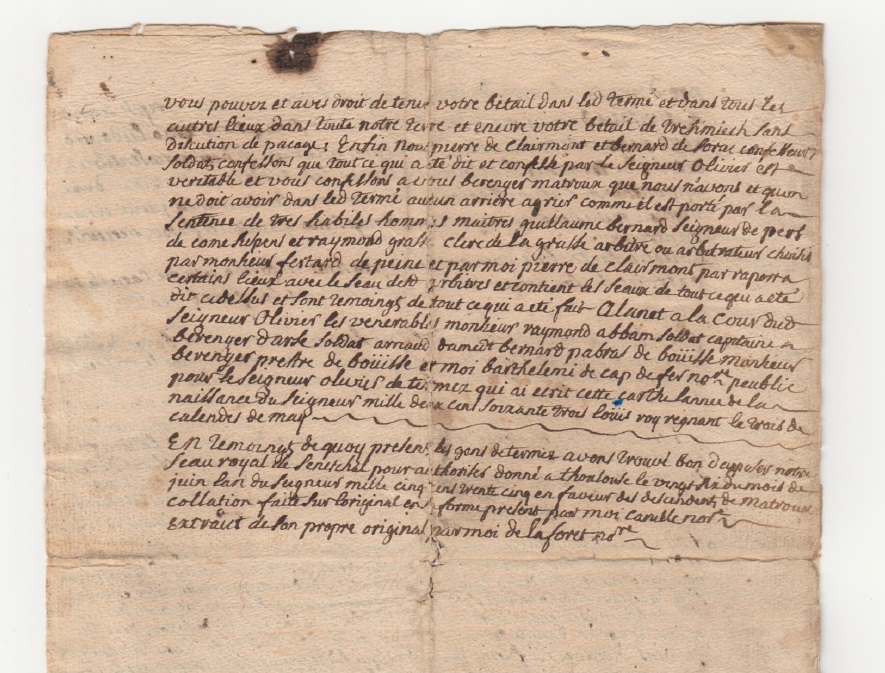 vous pouvez et avez droit de tenir votre bétail dans led termé et dans tous les
autres lieux dans toute notre terre et encore votre betail de sans
de pacage; Enfin nous pierre de Clairmont et bernard de
Soldat, confessons que tout ce qui a eté dit et confessé par le Seigneur Olivier est
veritable et vous confessons a vous berenger matroux que nous n'avons et quon
ne doit avoir dans led termé aucun arriére agrier comme il est porté par la
Sentence de tres habiles hommes maitres guillaume bernard Seigneur de
de et raymond grasse clerc de la grasse arbitre ou arbitrateur choisis
par monsieur de et par moi pierre de Clairmont par raport a
certains lieux avec le Seau desd arbitres et contient les Seaux de tout ce qui a eté
dit cidessus et sont temoings de tout ce qui a eté fait a la cour dud
Seigneur Olivier les venerables monsieur raymond abbam Soldat capitaine
berenger darse Soldat arnaud bernard pabras de boüisse monsieur
berenger prestre de boüisse et moi barthelemi de cap de fer nore peublic
pour le Seigneur olivier de termez qui ai ecrit cette carthe lannee de la
naissance du Seigneur mille deux cens Soixante trois loüis roy regnant le trois de
calendes de may
En temoings de quoy presens les gens de termez avons trouvé bon d'exposer notre
Seau royal de Senechal pour donné a thoulouse le vingt six du mois de
juin lan du Seigneur mille cinq cens trente cinq en faveur des descendents de matroux
collation faite Sur l'original en forme present par moi nore
Extrait de son propre original par moi de la foret nore